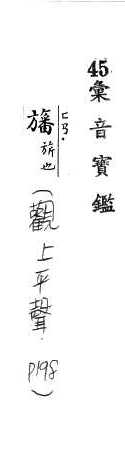 45彙音寶鑑
旛旂也(觀上平聲. P198)